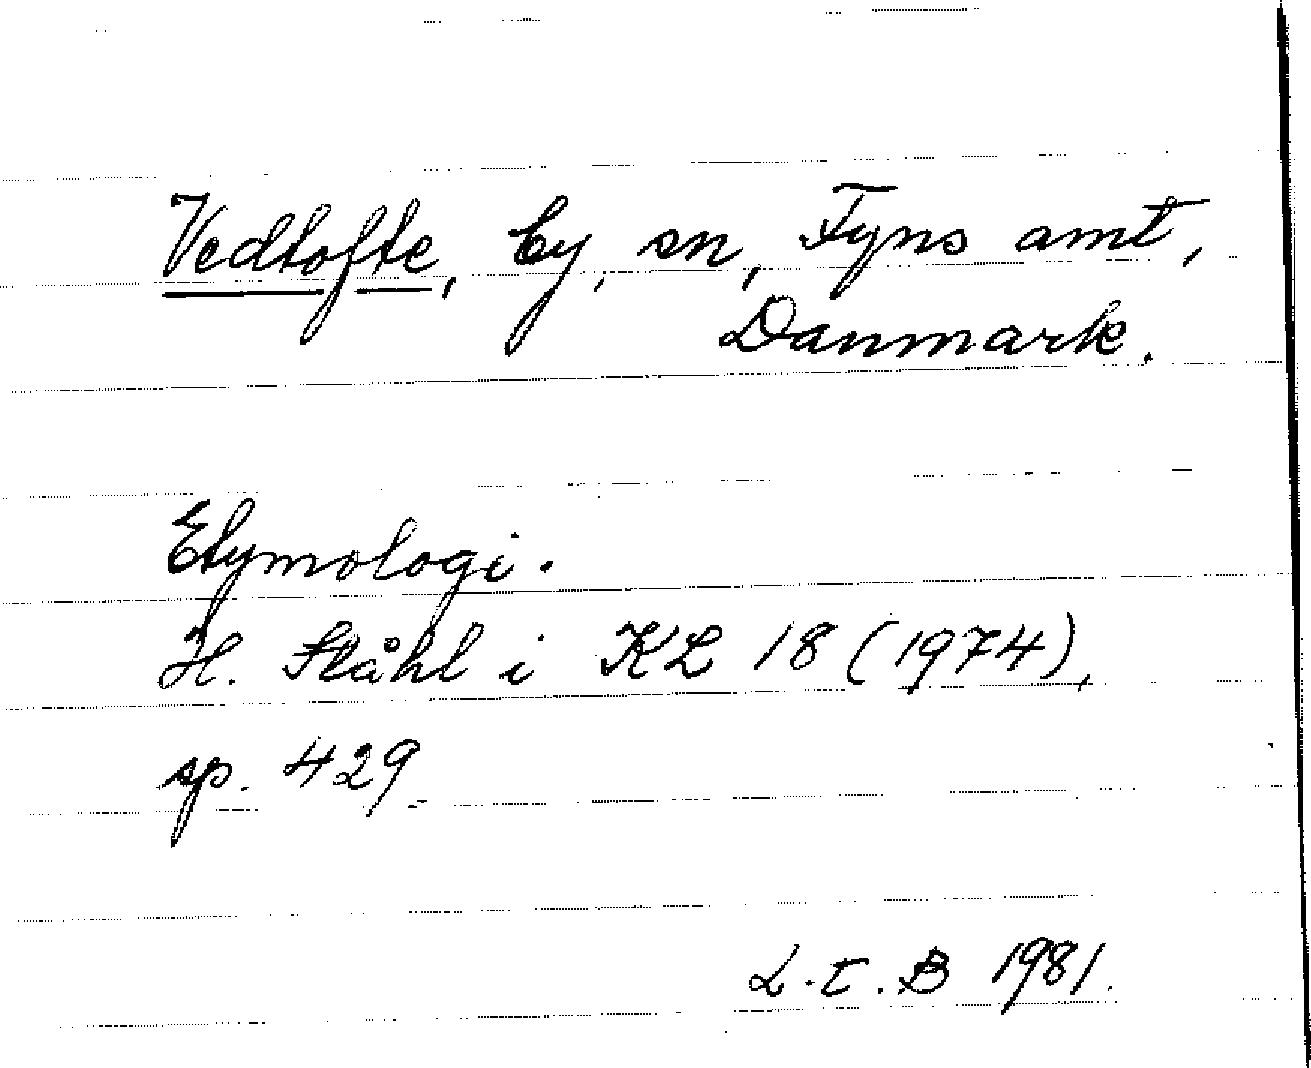 Vedtofte, by, sn, Fyns amt,
Danmark.
Etymologi.
H. Ståhl i KL 18 (1974),
sp. 429.
L.t.B 1981.